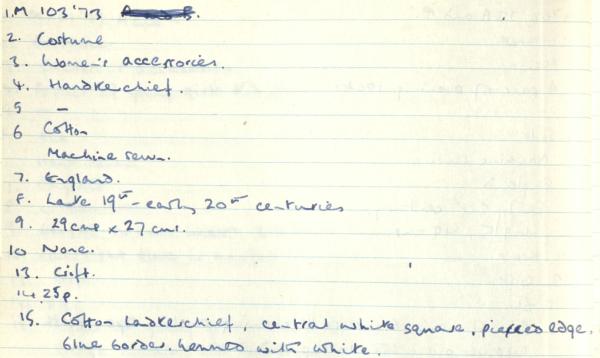 1. M 103'73
2. Costume
3. Women's accessories.
4. Handkerchief.
5 —
6 Cotton
Machine sewn.
7. England.
8. Late 19th - early 20th centuries
9. 29cms x 27cms.
10 None.
13. Gift.
14 25p.
15. Cotton handkerchief, central white square, edge. blue border. hemmed with white.